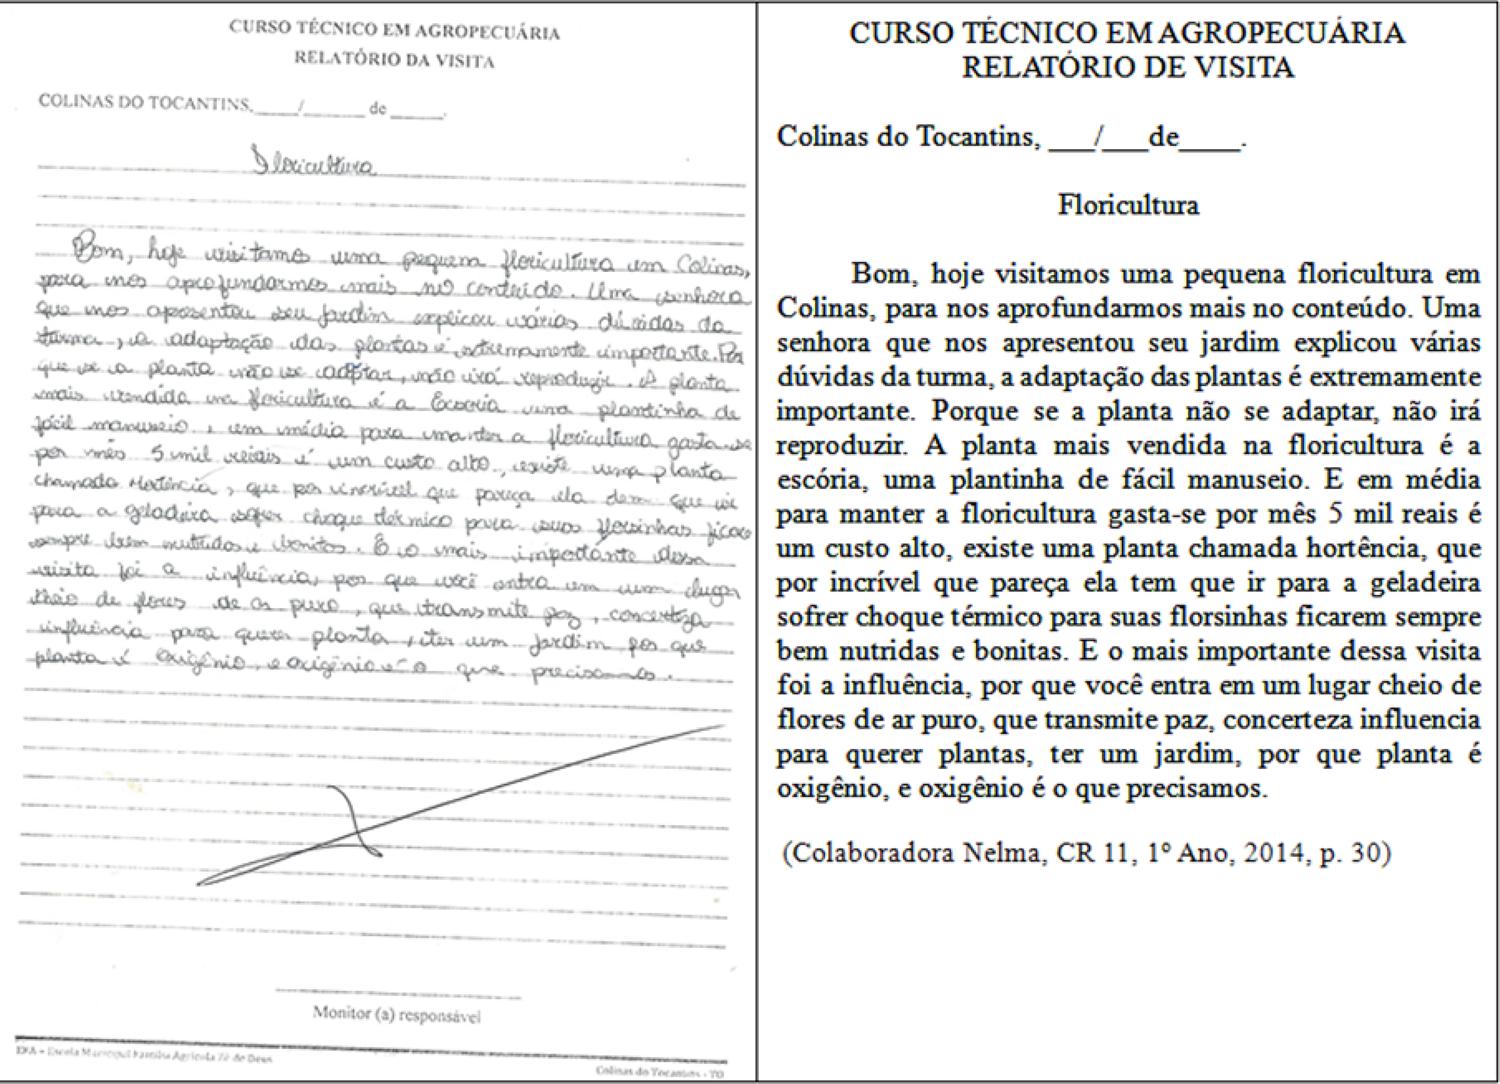 CURSO TÉCNICO EM AGROPECUÁRIA
RELATÓRIO DA VISITA
COLINAS DO TOCANTINS,____/______ de _____.
Floricultura
Bom, hoje visitamos uma pequena floricultura em Colinas,
para nos aprofundarmos mais no contéúdo. Uma senhora
que nos apresentou seu jardim explicou várias dúvidas da
turma, a adaptação das plantas é extremamente importante. Por
que se a planta não se adaptar, não irá reproduzir. A planta
mais vendida na floricultura é a Escoria uma plantinha de
fácil manuseio, em média para manter a floricultura gasta-se
por mês 5 mil reiais é um custo alto, existe uma planta
chamada Hortência, que por incrível que pareça ela dem que ir
para a geladeira sofrer choque térmico para suas florsinhas ficare
sempre bem nutridas e bonitas. E o mais importante dessa
visita foi a influência, por que você entra em um lugar
cheio de flores de ar puro, que transmite paz, concerteza
influência para querer planta, ter um jardim por que
planta é oxigênio, e oxigênio é o que precisamos.
Monitor (a) responsável
EFA - Escola Municipal Família Agrícola Zé de Deus
Colinas do Tocantins - TO
CURSO TÉCNICO EM AGROPECUÁRIA
RELATÓRIO DE VISITA
Colinas do Tocantins, ___/___de____.
Floricultura
Bom, hoje visitamos uma pequena floricultura em
Colinas, para nos aprofundarmos mais no conteúdo. Uma
senhora que nos apresentou seu jardim explicou várias
dúvidas da turma, a adaptação das plantas é extremamente
importante. Porque se a planta não se adaptar, não irá
reproduzir. A planta mais vendida na floricultura é a
escória, uma plantinha de fácil manuseio. E em média
para manter a floricultura gasta-se por mês 5 mil reais é
um custo alto, existe uma planta chamada hortência, que
por incrível que pareça ela tem que ir para a geladeira
sofrer choque térmico para suas florsinhas ficarem sempre
bem nutridas e bonitas. E o mais importante dessa visita
foi a influência, por que você entra em um lugar cheio de
flores de ar puro, que transmite paz, concerteza influencia
para querer plantas, ter um jardim, por que planta é
oxigênio, e oxigênio é o que precisamos.
(Colaboradora Nelma, CR 11, 1º Ano, 2014, p. 30)